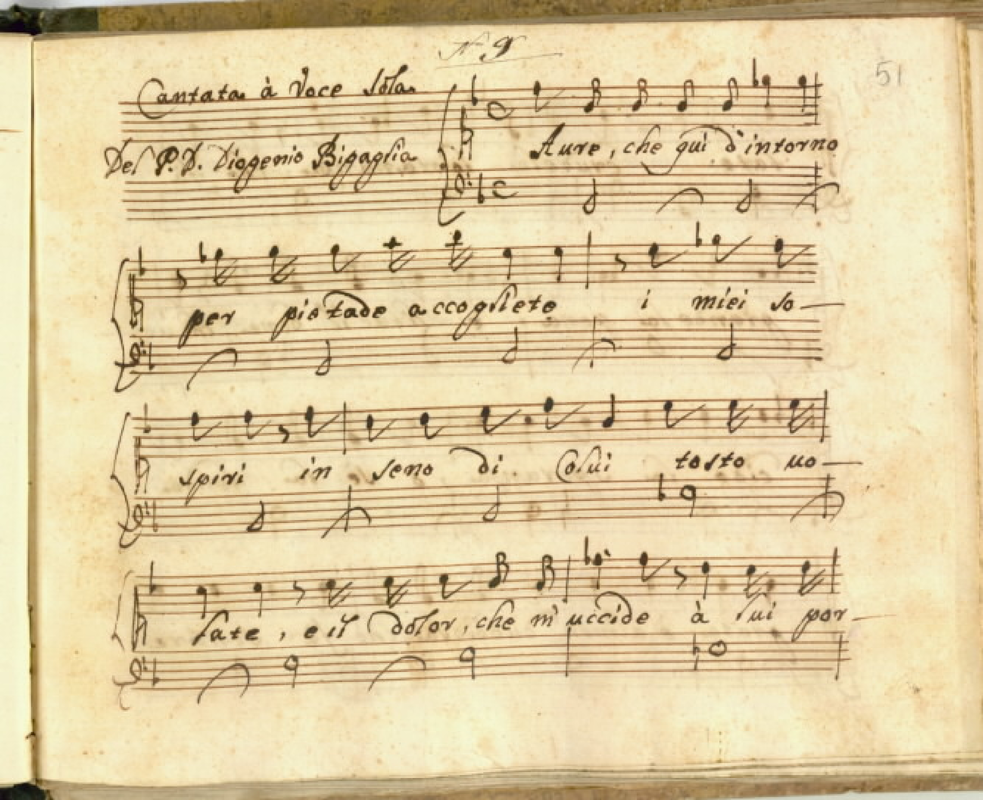 N 9
51
Cantata à Voce Sola
Del P. D. Diogenio Bigaglia
Aure, che qui d'intorno
per pietade accogliete i miei so—
spiri in seno di Colui tosto uo—
late, e il dolor, che m'uccide à lui por—